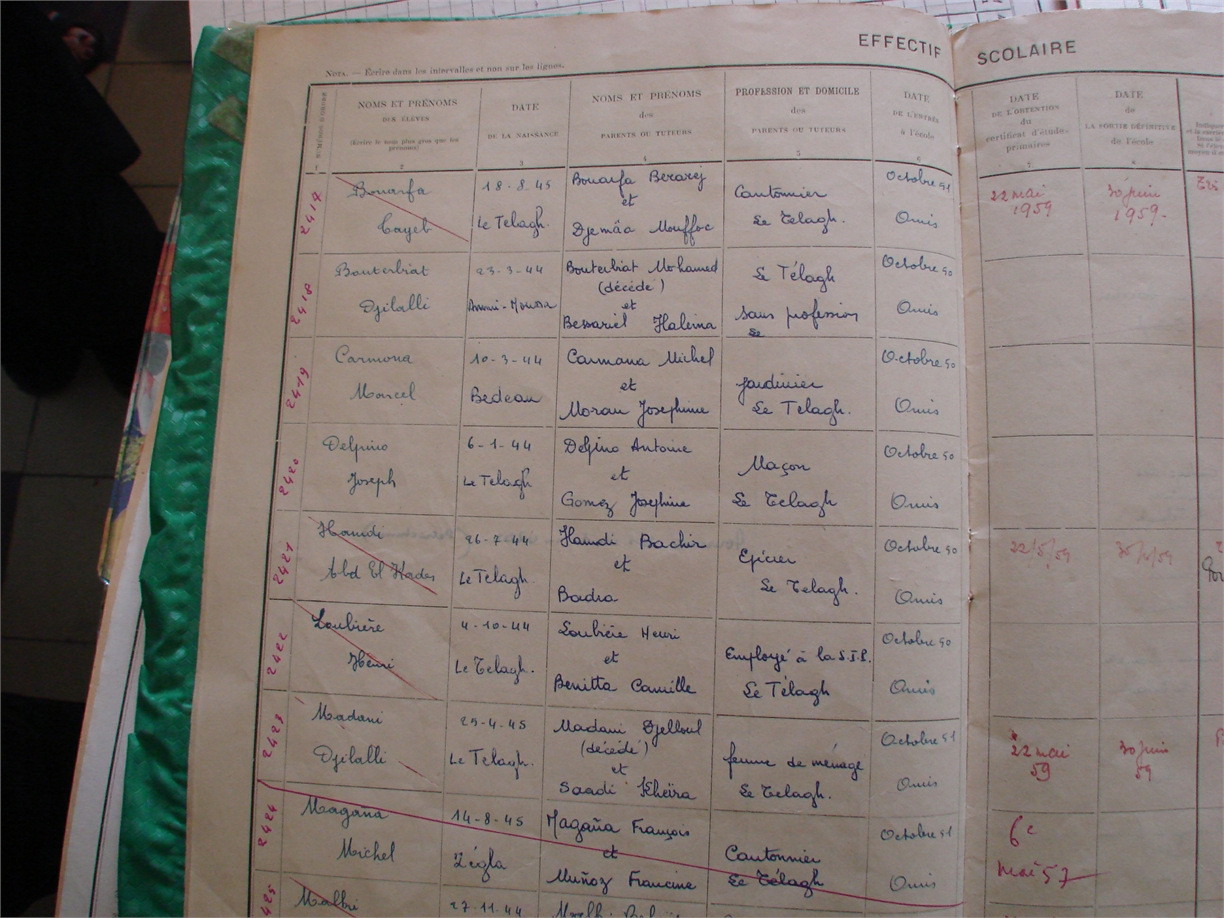 EFFECTIF SCOLAIRE
NOTA. — Écrire dans les intervalles et non sur les lignes.
NUMÉROS D'ORDRE
NOMS ET PRÉNOMS
DES ÉLÈVES
(Écrire le nom plus gros que les prénoms)
2
DATE
DE LA NAISSANCE
3
NOMS ET PRÉNOMS
des
PARENTS OU TUTEURS
4
PROFESSION ET DOMICILE
des
PARENTS OU TUTEURS
5
DATE
DE L'ENTRÉE
à l'école
6
DATE
DE L'OBTENTION
du
certificat d'études
primaires
7
DATE
de
LA SORTIE DÉFINITIVE
de l'école
8
2417
Bouarfa
Tayeb
18-8-45
Le Telagh
Bouarfa
et
Djemâa Mouffoc
Cantonnier
Le Telagh.
Octobre 51
Omis
22 mai
1959
30 juin
1959.
2418
Bouterbiat
Djilalli
23-3-44
Bouterbiat Mohamed
(décédé)
et
Halima
Le Télagh
sans profession
Le
Octobre 50
Omis
2419
Carmona
Marcel
10-3-44
Bedeau
Carmona Michel
et
Moran Josephine
Jardinier
Le Telagh.
Octobre 50
Omis
2420
Delpino
Joseph
6-1-44
Le Telagh
Delpino Antoine
et
Gomez Josephine
Maçon
Le Telagh.
Octobre 50
Omis
2421
Hamdi
Abd El Kader
26-7-44
Le Telagh.
Hamdi Bachir
et
Badra
Epicier
Le Telagh.
Octobre 50
Omis
22/5/59
30/6/59
2422
Loubière
Henri
4-10-44
Le Telagh.
Loubière Henri
et
Benitta Camille
Employé à la S.I.P.
Le Télagh
Octobre 50
Omis
2423
Madani
Djilalli
25-4-45
Le Telagh.
Madani Djelloul
(décédé)
et
Saadi Kheïra
femme de ménage
Le Telagh.
Octobre 51
Omis
22 mai
59
30 juin
59
2424
Magaña
Michel
14-8-45
Zégla
Magaña François
et
Muñoz Francine
Cantonnier
Le Télagh
Octobre 51
Omis
6e
mai 57
425
Malbi
27-11-44